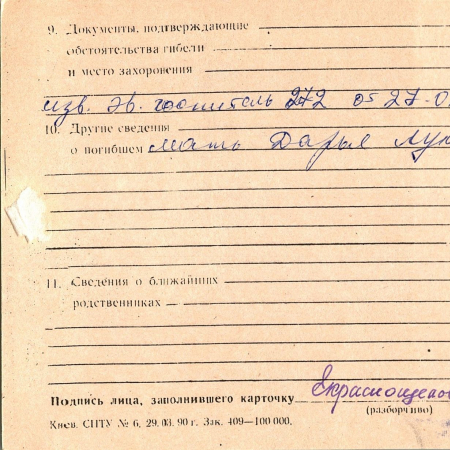 9. Документы, подтверждающие
обстоятельства гибели
и место захоронения
изв. эв. госпиталь 272 от 27-0
10. Другие сведения
о погибшем мать Дарья Лук
11. Сведения о ближайших
родственниках —
Подпись лица, заполнившего карточку
(разборчиво)
Киев. СПТУ № 6. 29. 03. 90 г. Зак. 409—100 000.